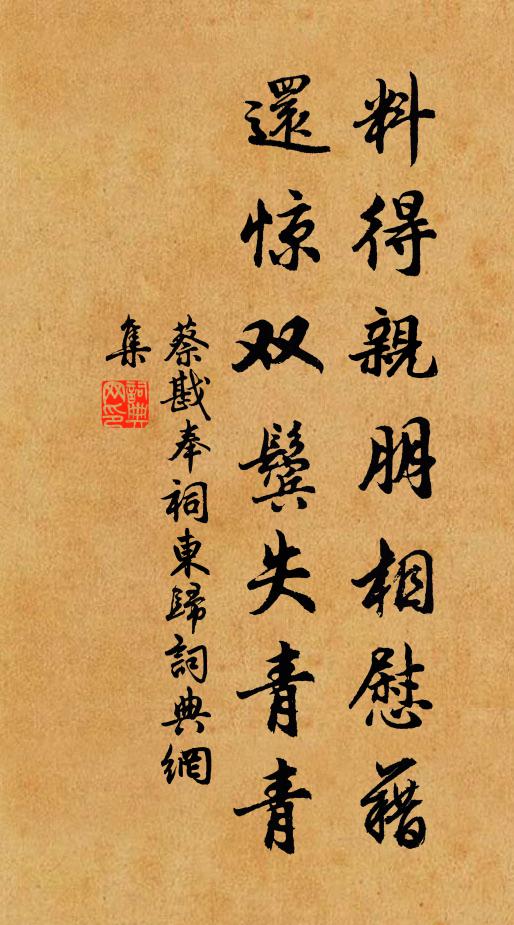 料得親朋相慰藉
還惊双鬢失青青
蔡戡奉祠東歸詞典網
集
詞典
网印